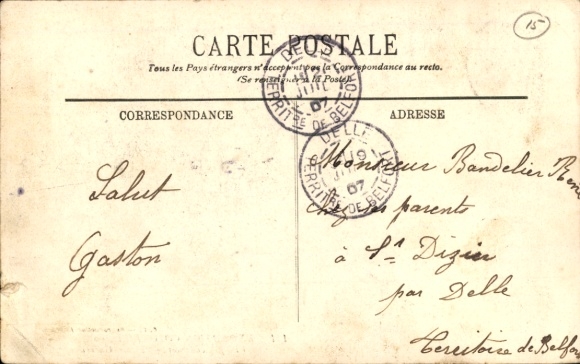 15
CARTE POSTALE
Tous les Pays étrangers n'acceptent pas la Correspondance au recto.
(Se renseigner à la Poste).
CORRESPONDANCE
ADRESSE
DELLE
JUIL
07
TERRITRE DE BELFORT
DELLE
07
TERRITRE DE BELFORT
Salut
Gaston
Monsieur Bandelier René
Chez ses parents
à St Dizier
par Delle
Territoire de Belfort